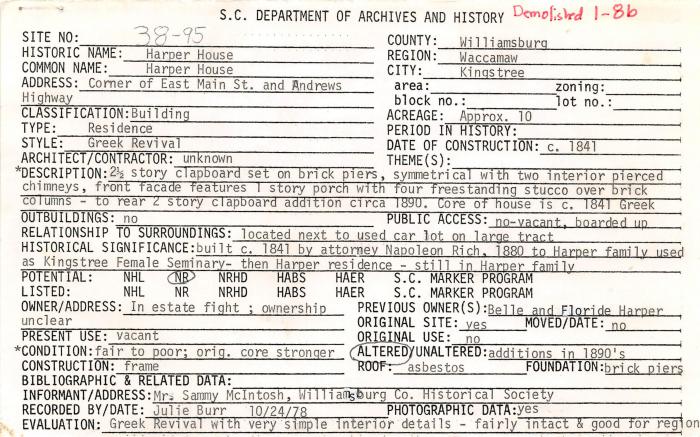 S.C. DEPARTMENT OF ARCHIVES AND HISTORY Demolished 1-86
SITE NO: 38-95 COUNTY: Williamsburg
HISTORIC NAME: Harper House REGION: Waccamaw
COMMON NAME: Harper House CITY: Kingstree
ADDRESS: Corner of East Main St. and Andrews area: zoning:
Highway block no.: lot no.:
CLASSIFICATION: Building ACREAGE: Approx. 10
TYPE: Residence PERIOD IN HISTORY:
STYLE: Greek Revival DATE OF CONSTRUCTION: c. 1841
ARCHITECT/CONTRACTOR: unknown THEME(S):
*DESCRIPTION: 2½ story clapboard set on brick piers, symmetrical with two interior pierced
chimneys, front facade features 1 story porch with four freestanding stucco over brick
columns - to rear 2 story clapboard addition circa 1890. Core of house is c. 1841 Greek
OUTBUILDINGS: no PUBLIC ACCESS: no-vacant, boarded up
RELATIONSHIP TO SURROUNDINGS: located next to used car lot on large tract
HISTORICAL SIGNIFICANCE: built c. 1841 by attorney Napoleon Rich, 1880 to Harper family used
as Kingstree Female Seminary- then Harper residence - still in Harper family
POTENTIAL: NHL NR NRHD HABS HAER S.C. MARKER PROGRAM
LISTED: NHL NR NRHD HABS HAER S.C. MARKER PROGRAM
OWNER/ADDRESS: In estate fight ; ownership PREVIOUS OWNER(S): Belle and Floride Harper
unclear ORIGINAL SITE: yes MOVED/DATE: no
PRESENT USE: vacant ORIGINAL USE: no
*CONDITION: fair to poor; orig. core stronger ALTERED/UNALTERED: additions in 1890's
CONSTRUCTION: frame ROOF: asbestos FOUNDATION: brick piers
BIBLIOGRAPHIC & RELATED DATA:
INFORMANT/ADDRESS: Mrs Sammy McIntosh, Williamsburg Co. Historical Society
RECORDED BY/DATE: Julie Burr 10/24/78 PHOTOGRAPHIC DATA: yes
EVALUATION: Greek Revival with very simple interior details - fairly intact & good for region